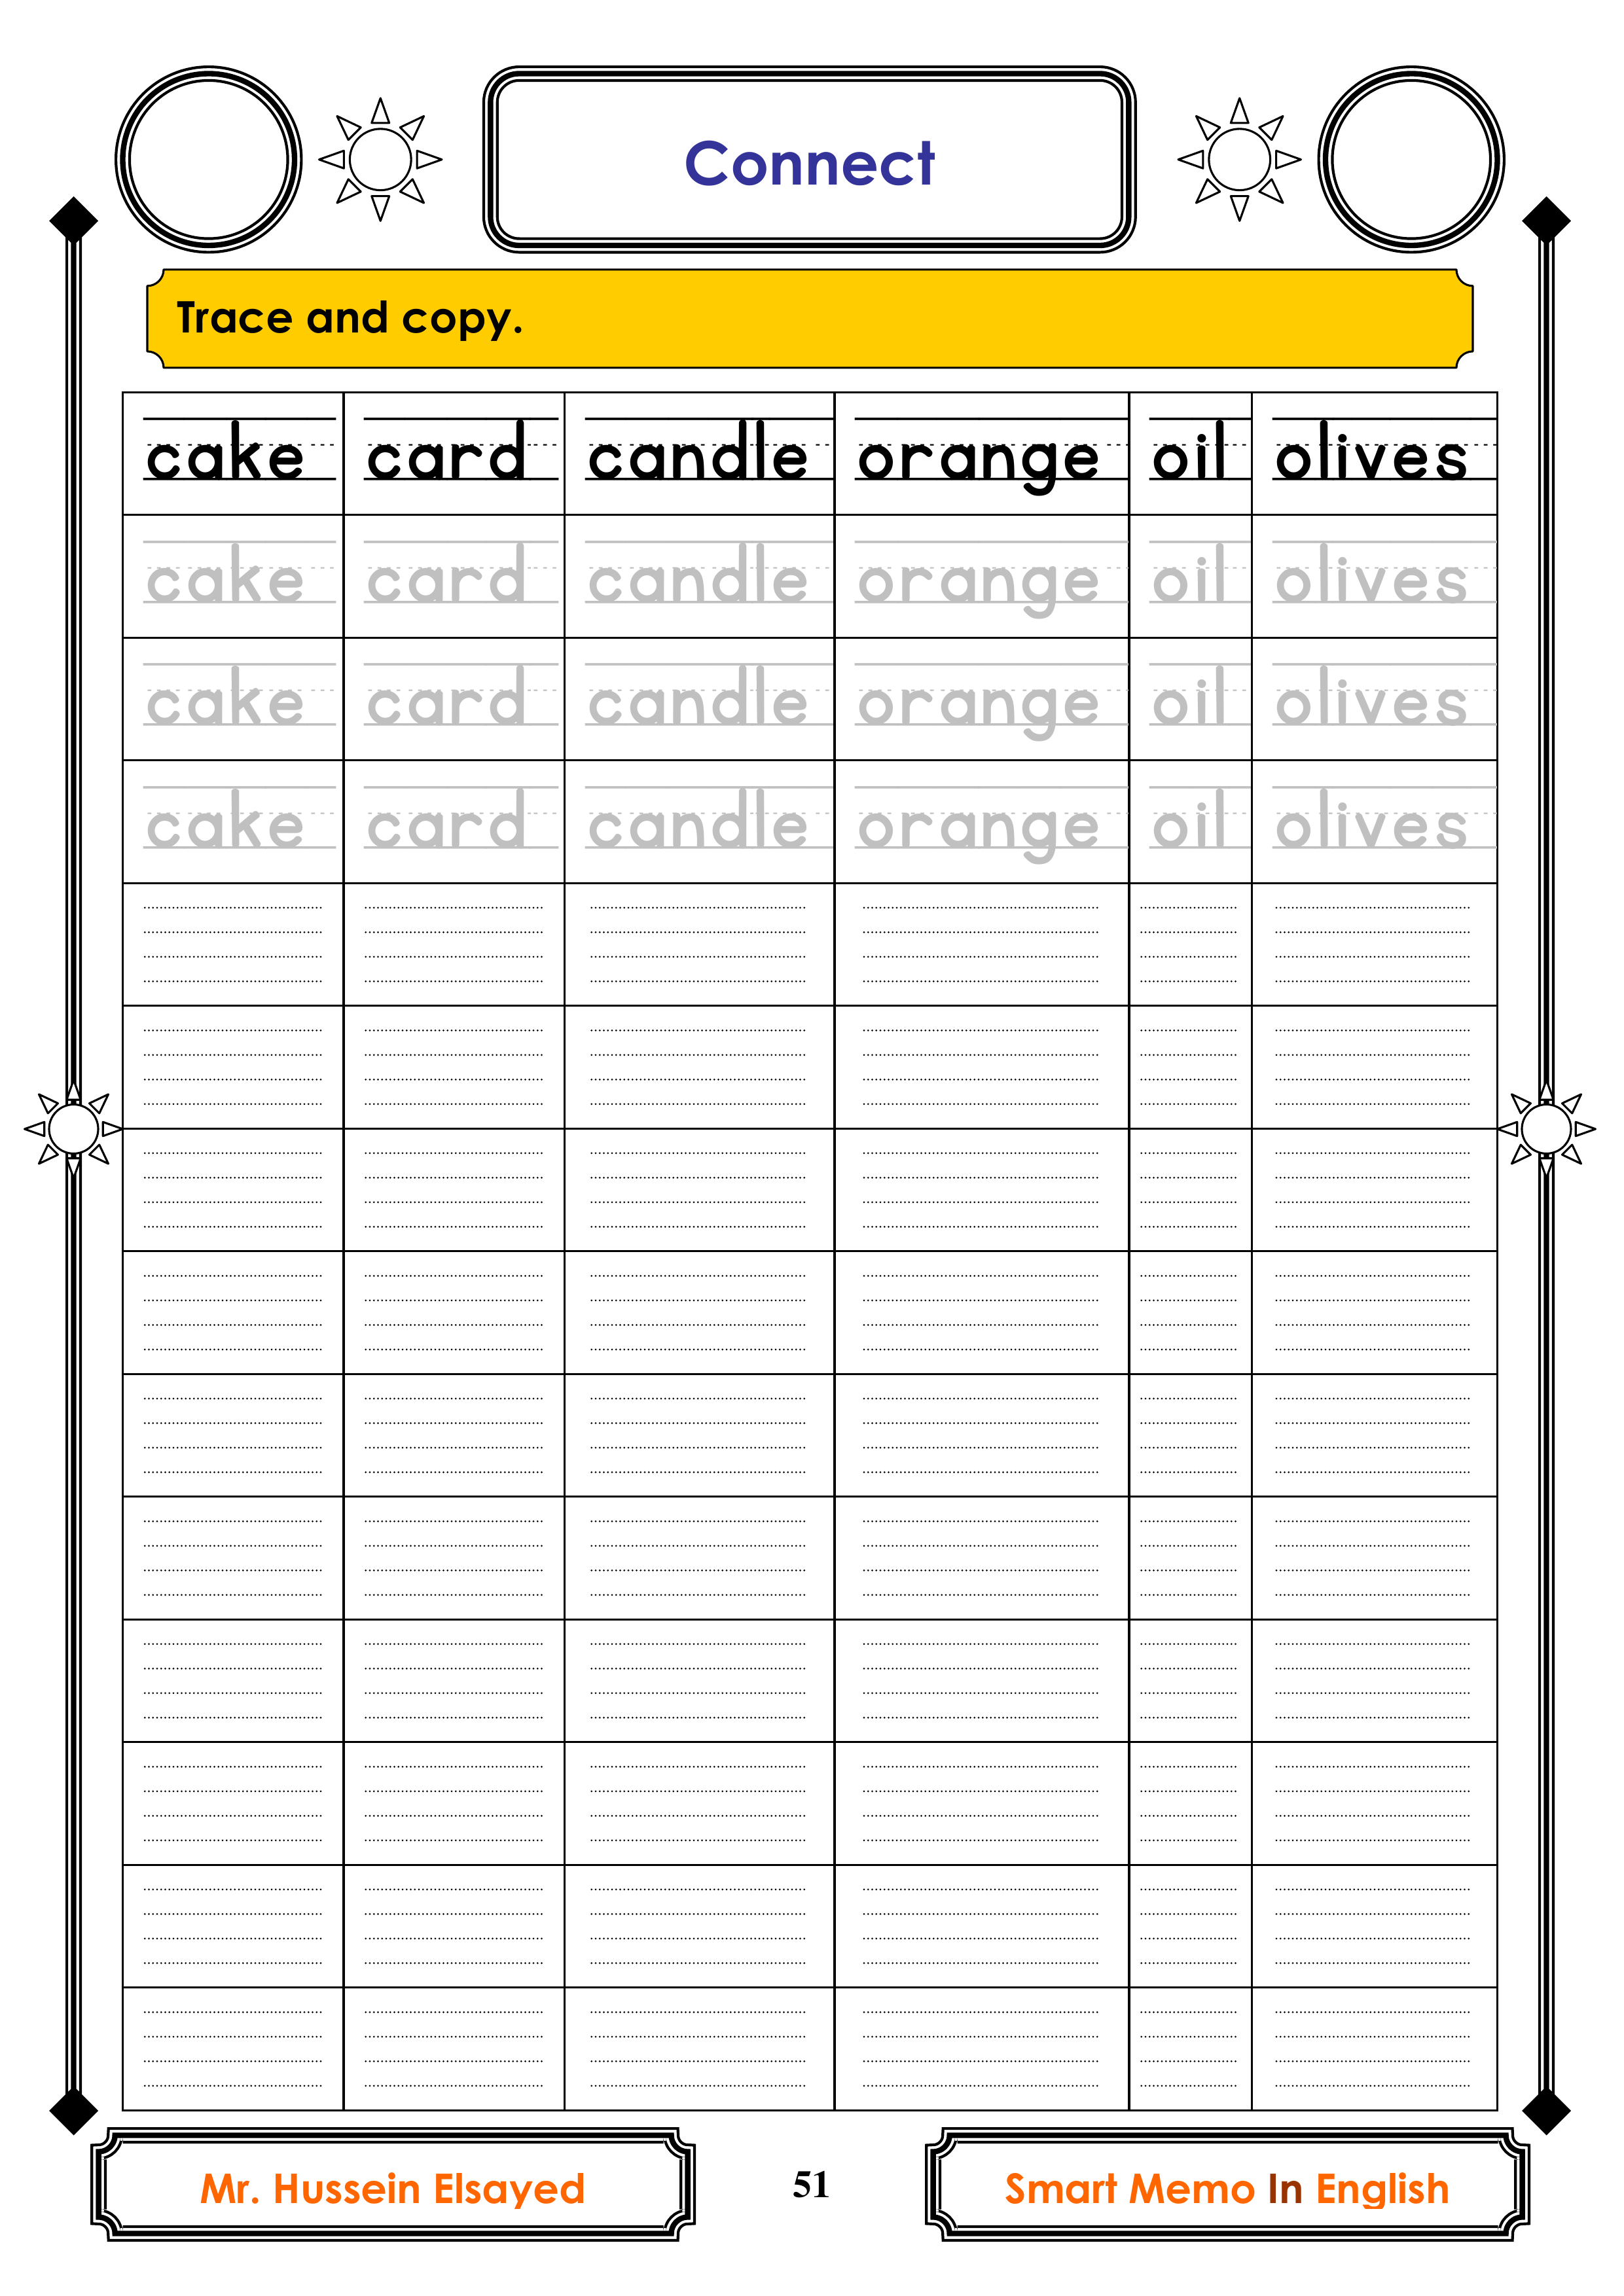 Connect
Trace and copy.
cake card candle orange oil olives
cake card candle orange oil olives
cake card candle orange oil olives
cake card candle orange oil olives
Mr. Hussein Elsayed 51 Smart Memo In English